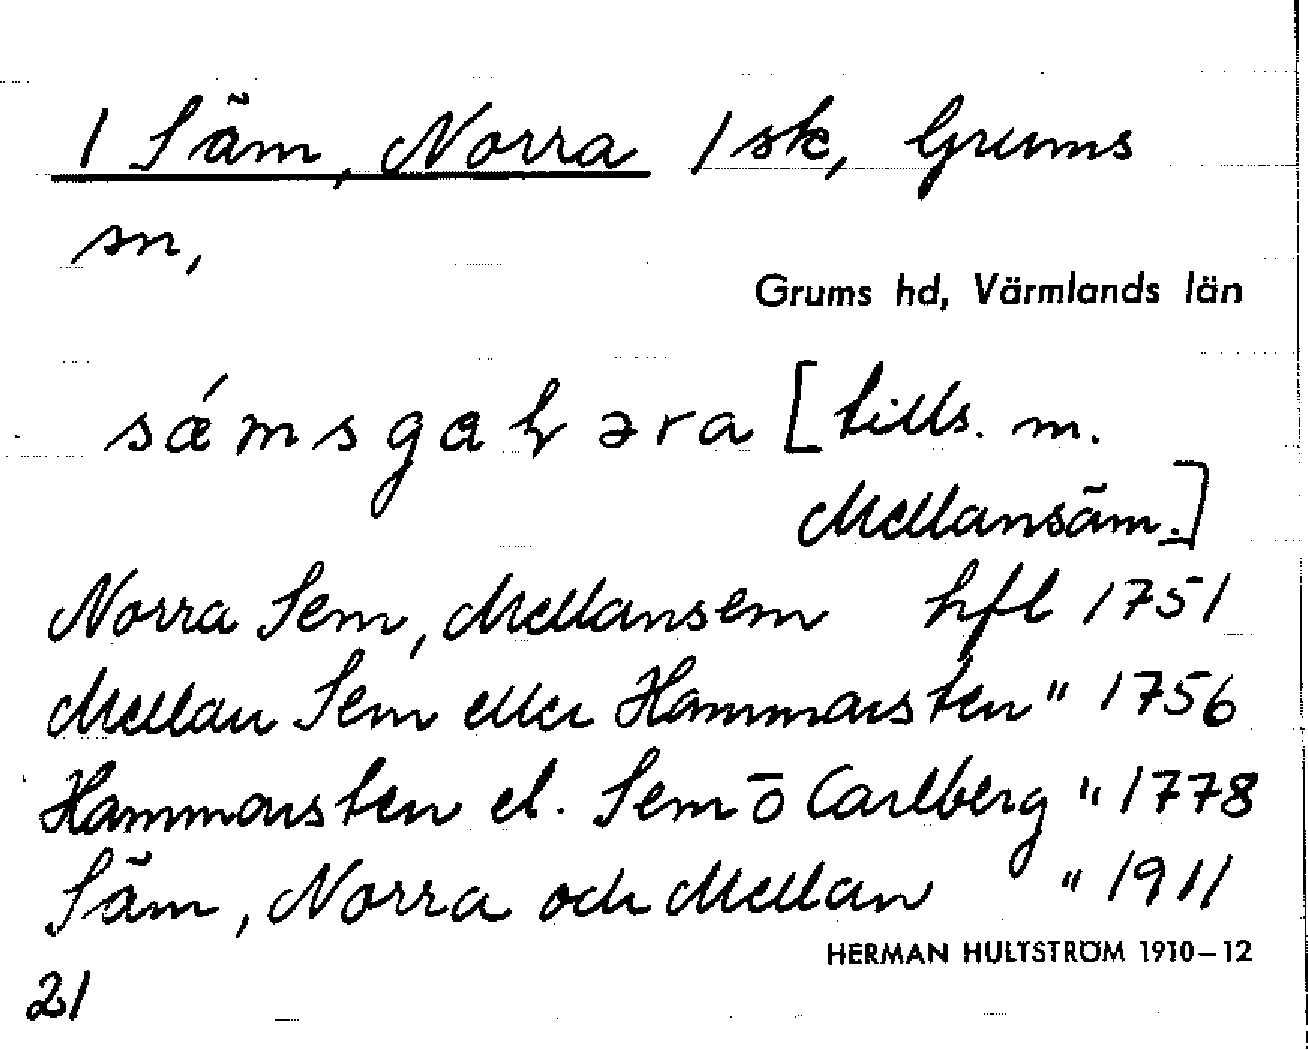 1 Säm, Norra 1 sk, Grums
sn,
Grums hd, Värmlands län
sǽmsgaɫɘra [tills. m.
Mellansäm.]
Norra Sem, Mellansem hfl 1751
Mellan Sem eller Hammarsten " 1756
Hammarsten el. Sem ō Carlberg " 1778
Säm, Norra och Mellan " 1911
HERMAN HULTSTRÖM 1910–12
21